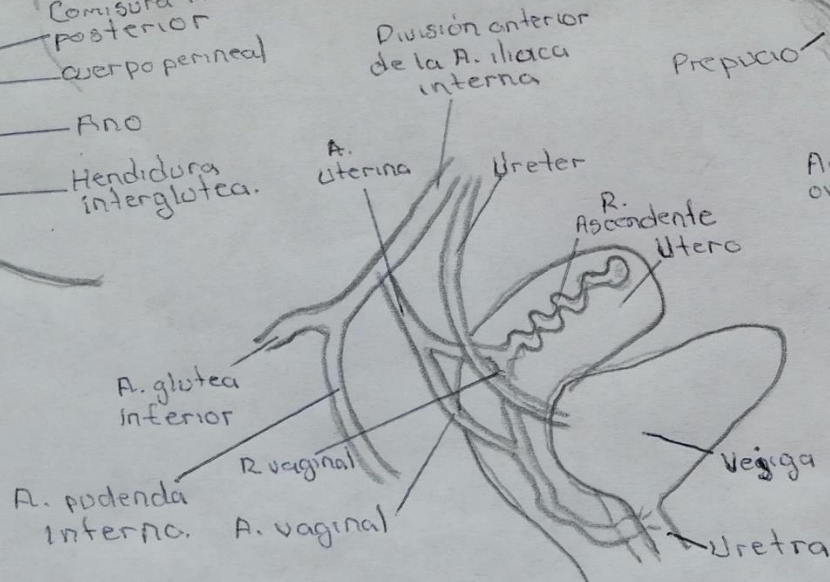 Comisura
posterior
cuerpo perineal
Ano
Hendidura
interglutea.
División anterior
de la A. iliaca
interna
Prepucio
A.
uterina
Ureter
R.
Ascendente
Utero
A. glutea
inferior
R vaginal
A. pudenda
interna.
A. vaginal
Vejiga
Uretra